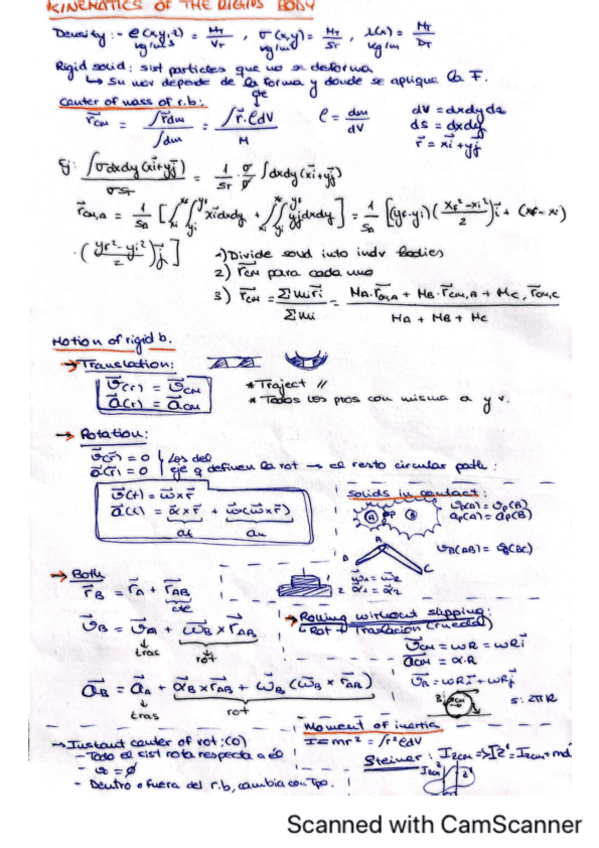 KINEMATICS OF THE RIGID BODY
Density: - ρ(x,y,z) = MT/VT , σ(x,y) = MT/ST , λ(x) = MT/DT
kg/m³ kg/m² kg/m
Rigid solid: sist particles que no se deforma
↳ Su mov depende de la forma y donde se aplique la F.
Center of mass of r.b:
r⃗CM = ∫r⃗dm / ∫dm = ∫r⃗·ρdV / M ρ = dm/dV
dV = dxdydz
ds = dxdy
r⃗ = xi⃗ + yj⃗
Ej: ∫σdxdy(xi⃗+yj⃗) / σST = 1/ST · σ/σ ∫dxdy(xi⃗+yj⃗)
r⃗CM,A = 1/SA [∫∫xi⃗dxdy + ∫∫yj⃗dxdy] = 1/SA [(yf-yi)(xf²-xi²/2)i⃗ + (xf-xi)
·(yf²-yi²/2)j⃗]
1) Divide solid into indv bodies
2) r⃗CM para cada uno
3) r⃗CM = Σmir⃗i / Σmi = MA·r⃗CM,A + MB·r⃗CM,B + MC,r⃗CM,C / MA + MB + MC
Motion of rigid b.
→ Translation:
v⃗(r) = v⃗CM
a⃗(r) = a⃗CM
* Traject //
* Todos los ptos con misma a y v.
→ Rotation:
v⃗(r) = 0
a⃗(r) = 0
Los del eje q definen la rot → el resto circular path:
v⃗(t) = ω⃗×r⃗
a⃗(t) = α⃗×r⃗ + ω⃗(ω⃗×r⃗)
at an
Solids in contact:
A P B
vp(A) = vp(B)
ap(A) = ap(B)
A B C
vB(AB) = vB(BC)
1 2
ω⃗1 = ω⃗2
α⃗1 = α⃗2
→ Both
r⃗B = r⃗A + r⃗AB
cte
v⃗B = v⃗A + ω⃗B × r⃗AB
tras rot
a⃗B = a⃗A + α⃗B×r⃗AB + ω⃗B(ω⃗B × r⃗AB)
tras rot
→ Rolling without slipping:
↳ Rot + Traslación (rueda)
v⃗CM = ωR = ωRi⃗
a⃗CM = α·R
v⃗B = ωRi⃗ + ωRj⃗
B CM s: 2πR
→ Instant center of rot: (O)
- Todo el sist rota respecto a él
- v = 0
- Dentro o fuera del r.b, cambia con tpo.
Moment of inertia
I = mr² = ∫r²ρdV
Steiner: IzCM => Iz' = IzCM + md
IzCM z'
Scanned with CamScanner